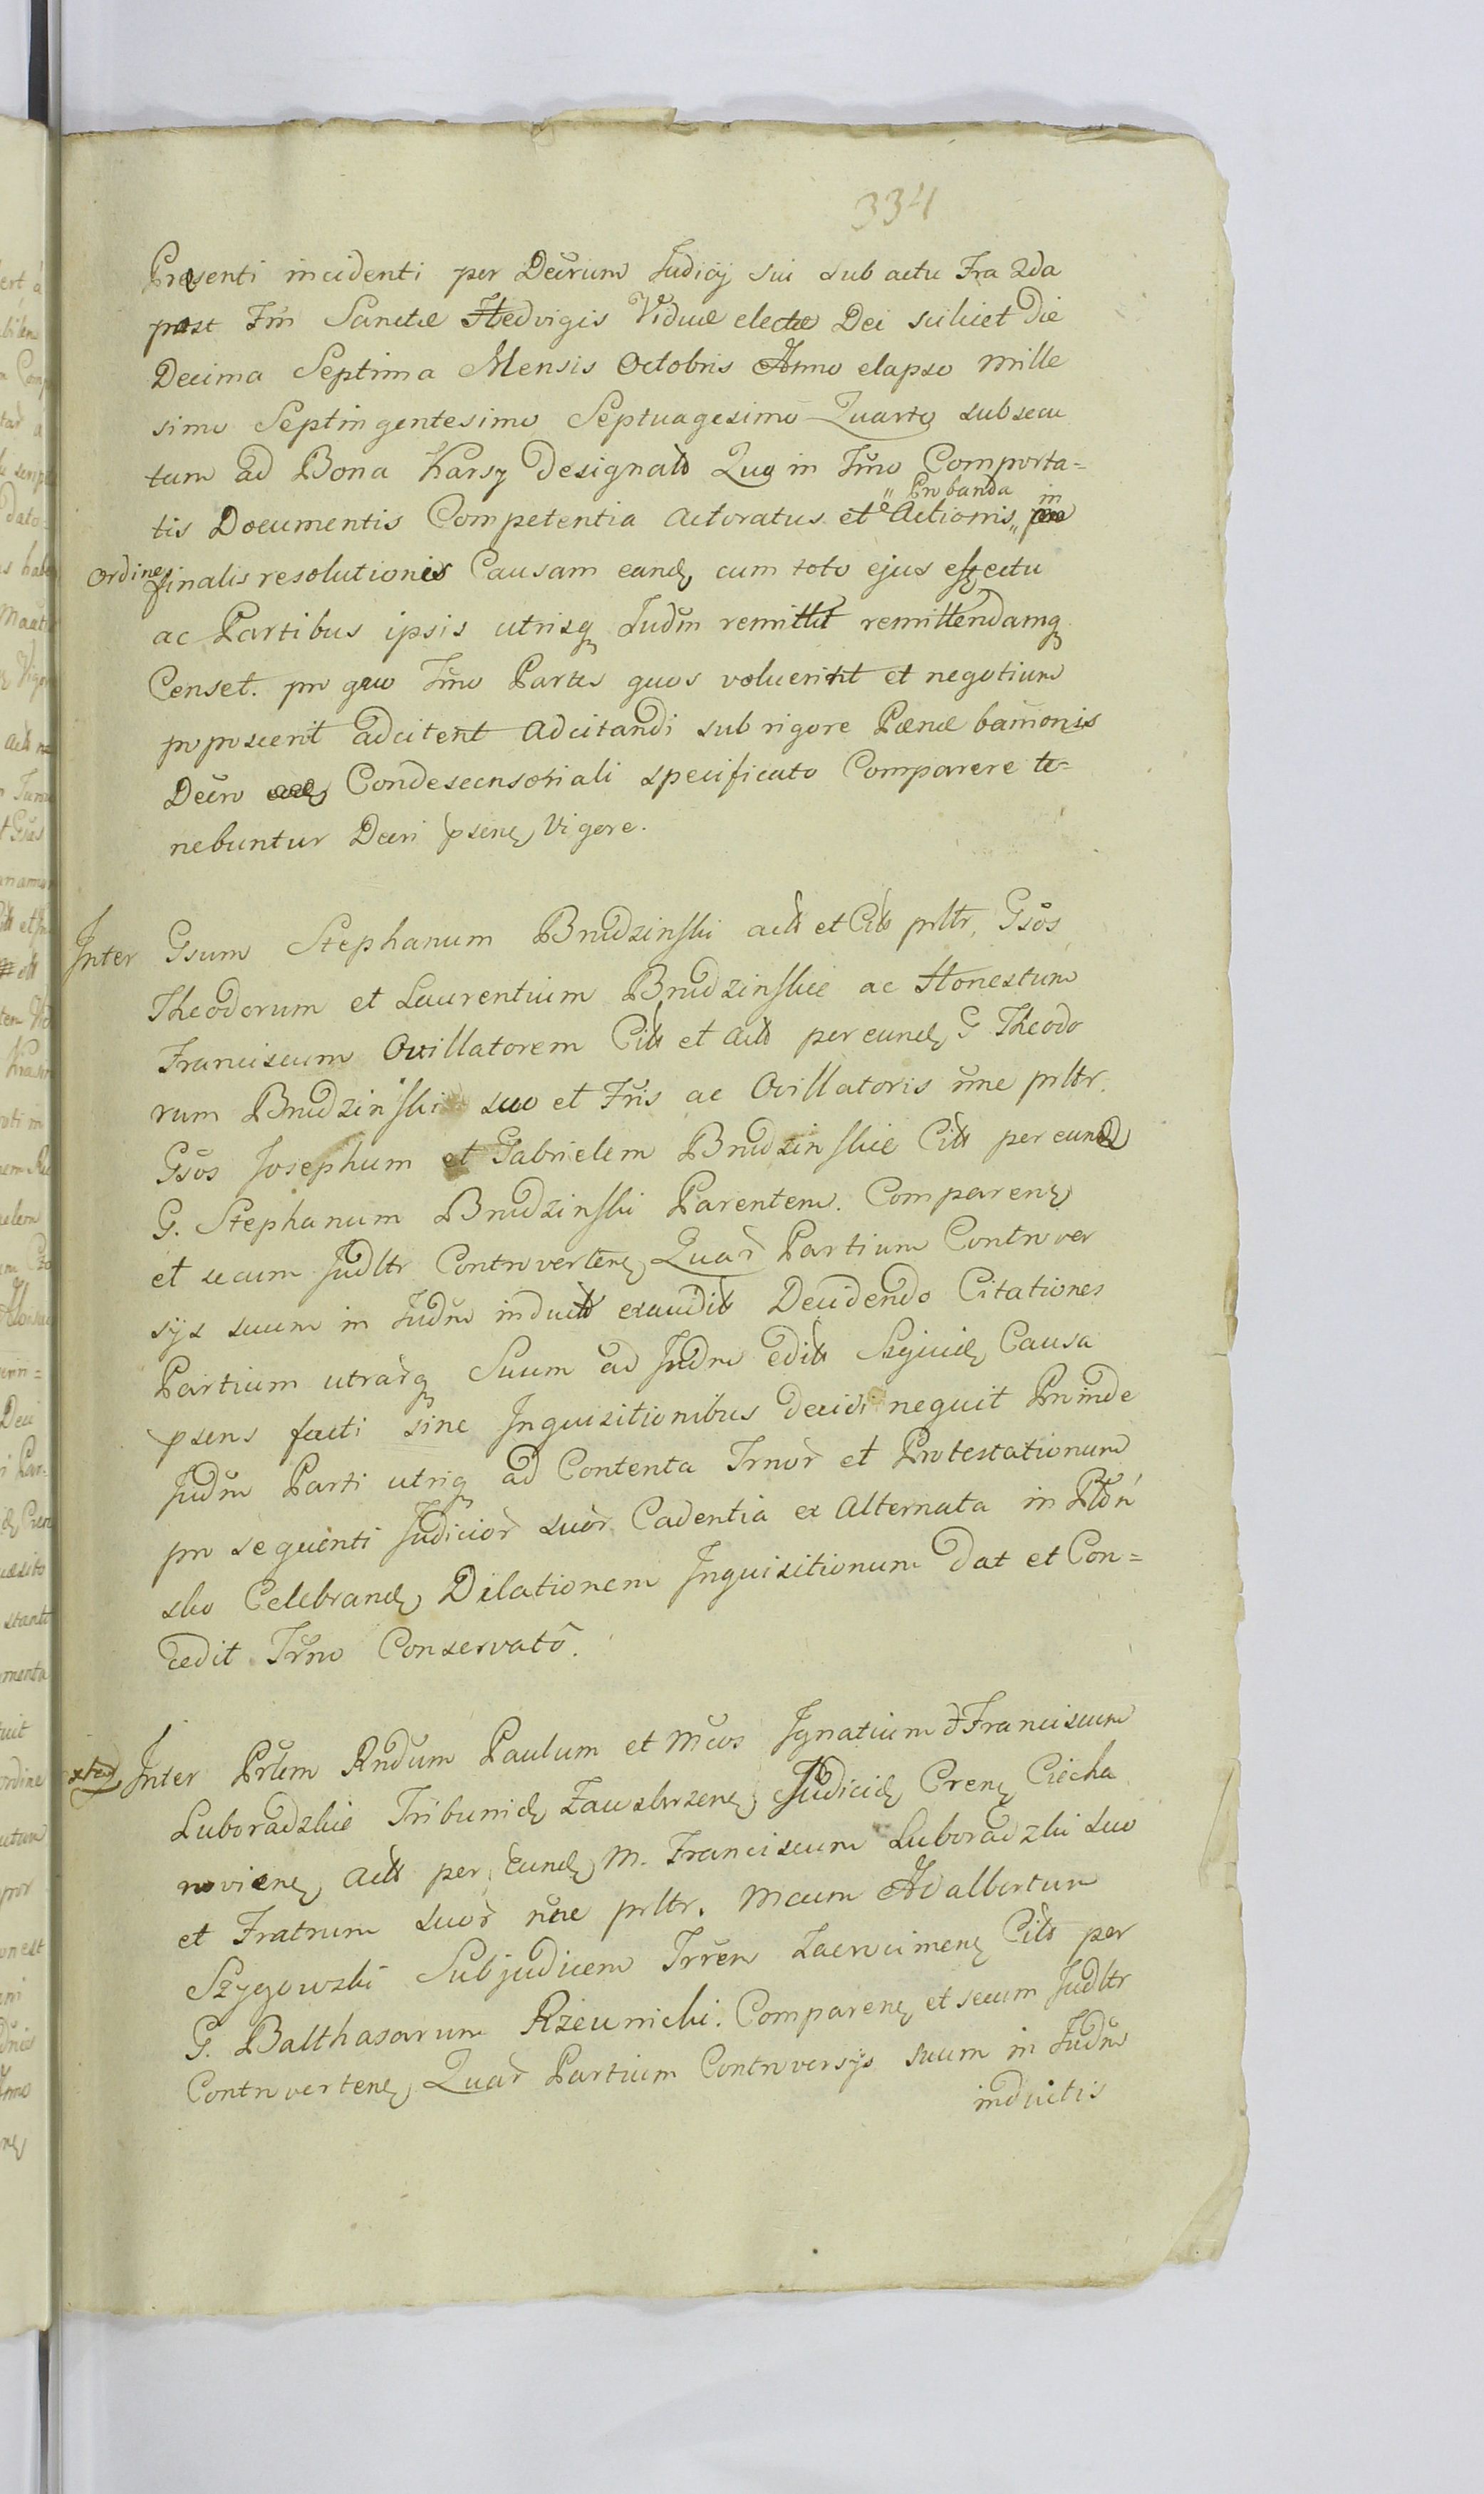 334
Presenti incidenti per Decrum Judicij sui sub actu Fra 2da
post Fm Sanctæ Hedvigis Viduæ electæ Dei scilicet Die
Decima Septima Mensis Octobris Anno elapso Mille
simo Septingentesimo Septuagesimo Quarto subsecu
tum ad Bona Karsy designatt Quo in Tmo Comporta=
tis Documentis Competentia Actoratus et Actionis „ Probanda „ in
Ordine finalis resolutionis Causam eand cum toto ejus effectu
ac Partibus ipsis utrisq Judm remittit remittendamq
Censet. pro quo Tmo Partes quos voluerint et negotium
poposcerit adcitent Adcitandi sub rigore Pænæ bannionis
Decro Condescensoriali specificato Comparere te=
nebuntur Decri psens Vigore.
Inter Gsum Stephanum Brudzinski actt et Citt prltr, Gsos
Theodorum et Laurentium Brudzinskie ac Honestum
Franciscum Ovillatorem Citt et Actt per eund G Theodo
rum Brudzinski suo et Fris ac Ovillatoris nne prltr.
Gsos Josephum et Gabrielem Brudzinskie Citt per eund
G. Stephanum Brudzinski Parentem. Comparen
et secum Judltr Controverten Quar Partium Controver
sys suum in Judm inductt exaudit Decidendo Citationes
Partium utrarq Suum ad Judm editt Szjicit Causa
psens facti sine Inquisitionibus decidi nequit Proinde
Judm Parti utriq ad Contenta Trnor et Protestationum
pro sequenti Judicior suor Cadentia ex Alternata in Pldn
sko Celebrand Dilationem Inquisitionum Dat et Con=
cedit Trmo Conservato.
Inter Prlem Rndum Paulum et Mcos Ignatium & Franciscum
Luboradzkie Tribunid Zawskrzen Judicid Cren Ciecha
novien Actt per Eund M. Franciscum Luboradzki suo
et Fratrum suor nne prltr. Mcum Adalbertum
Szygowski Subjudicem Trren Zacrocimen Citt per
G. Balthasarum Rzeunicki. Comparen et secum Judltr
Controverten Quar Partium Controversys suum in Judm
inductis